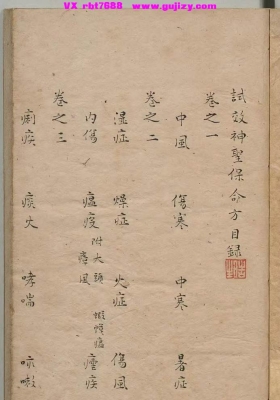 VX rbt7688 www.gujizy.com
試效神聖保命方目録
卷之一
中風 傷寒 中寒 暑症
卷之二
濕症 燥症 火症 傷風
內傷 瘟疫 附大頭 蝦蟆瘟 瘧疾
卷之三
痢疾 痰火 哮喘 咳嗽